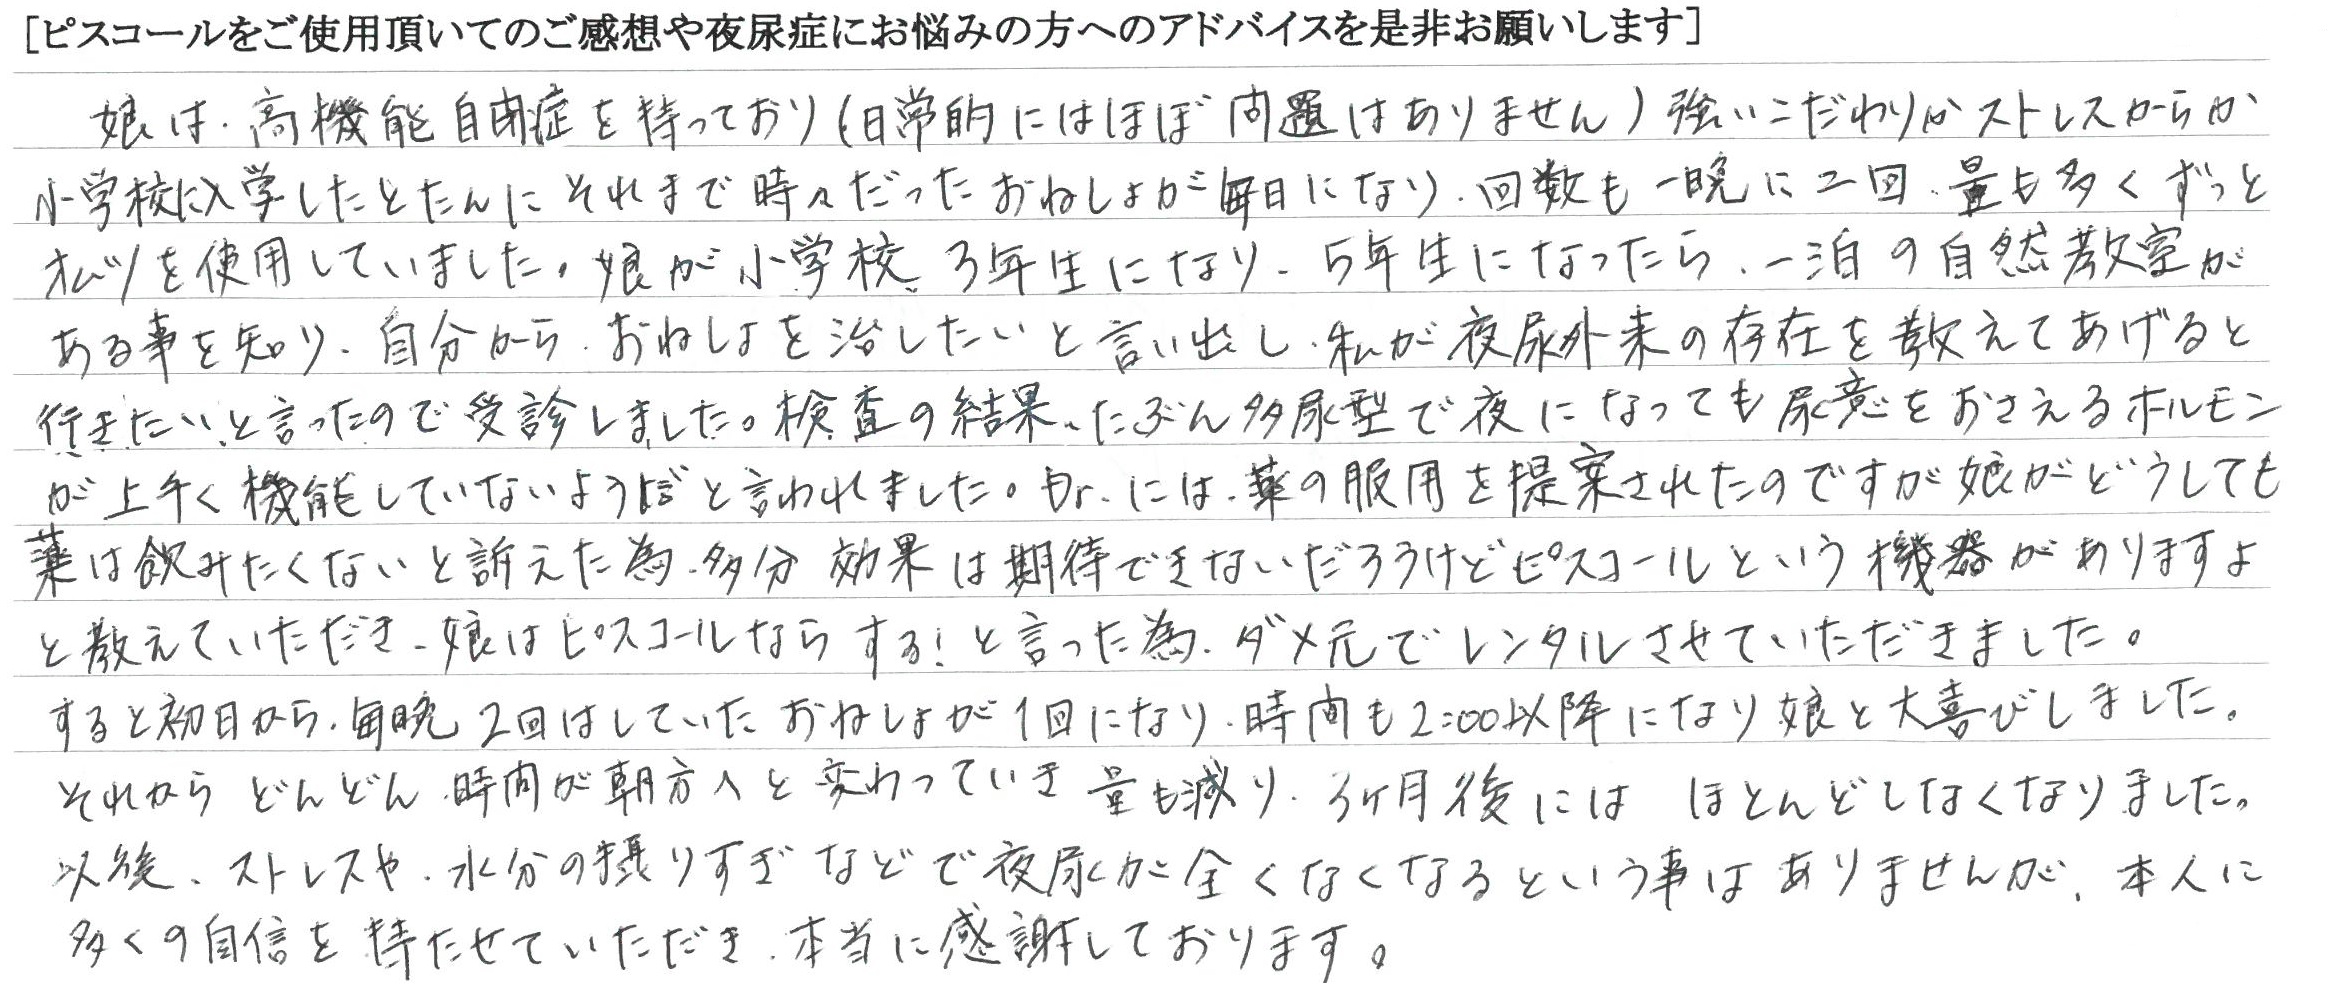 [ピスコールをご使用頂いてのご感想や夜尿症にお悩みの方へのアドバイスを是非お願いします]
娘は、高機能自閉症を持っており(日常的にはほぼ問題はありません)強いこだわりかストレスからか
小学校に入学したとたんにそれまで時々だったおねしょが毎日になり、回数も一晩に二回、量も多くずっと
オムツを使用していました。娘が小学校3年生になり、5年生になったら、一泊の自然教室が
ある事を知り、自分から、おねしょを治したいと言い出し、私が夜尿外来の存在を教えてあげると
行きたい、と言ったので受診しました。検査の結果、たぶん多尿型で夜になっても尿意をおさえるホルモン
が上手く機能していないようだと言われました。Dr.には、薬の服用を提案されたのですが娘がどうしても
薬は飲みたくないと訴えた為、多分効果は期待できないだろうけどピスコールという機器がありますよ
と教えていただき、娘はピスコールならする!と言った為、ダメ元でレンタルさせていただきました。
すると初日から、毎晩2回はしていたおねしょが1回になり、時間も2:00以降になり娘と大喜びしました。
それからどんどん、時間が朝方へと変わっていき量も減り、3ヶ月後にはほとんどしなくなりました。
以後、ストレスや、水分の摂りすぎなどで夜尿が全くなくなるという事はありませんが、本人に
多くの自信を持たせていただき、本当に感謝しております。